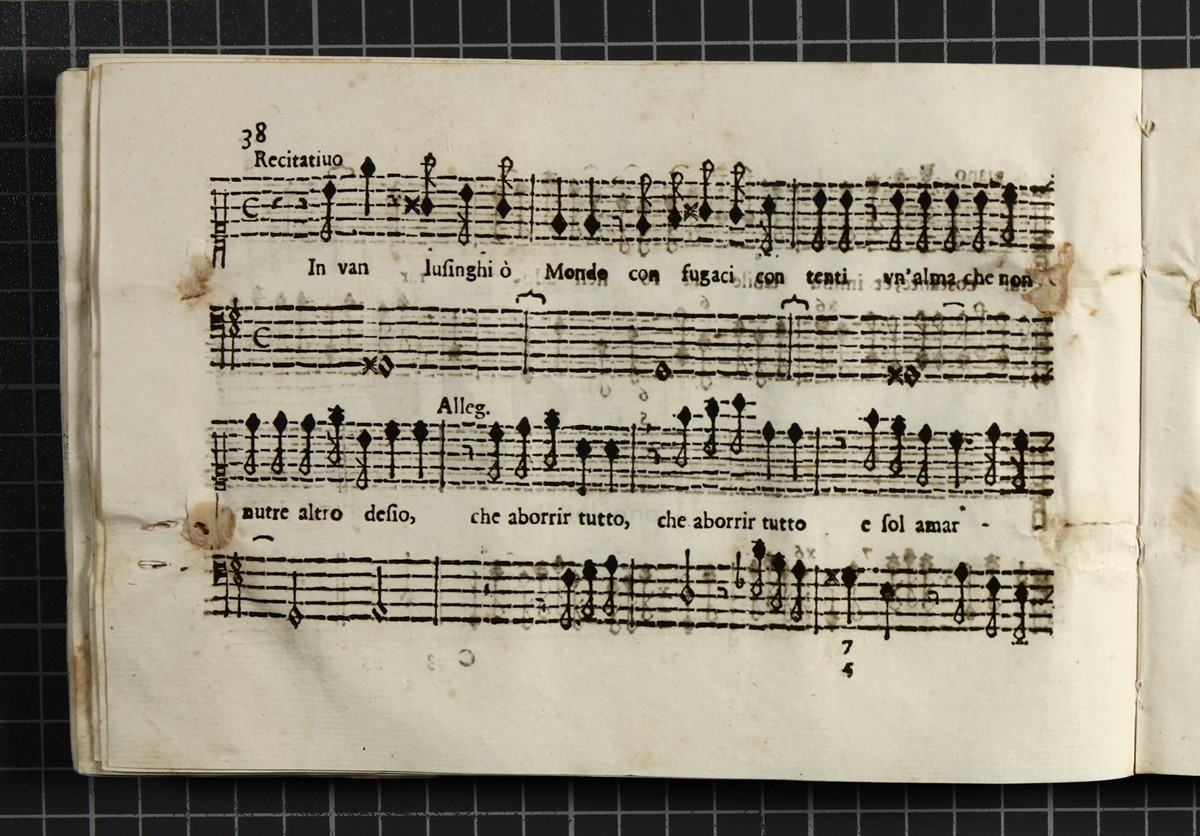 38
Recitatiuo
In van lusinghi ò Mondo con fugaci con tenti vn'alma che non
Alleg.
nutre altro desio, che aborrir tutto, che aborrir tutto e sol amar -
7